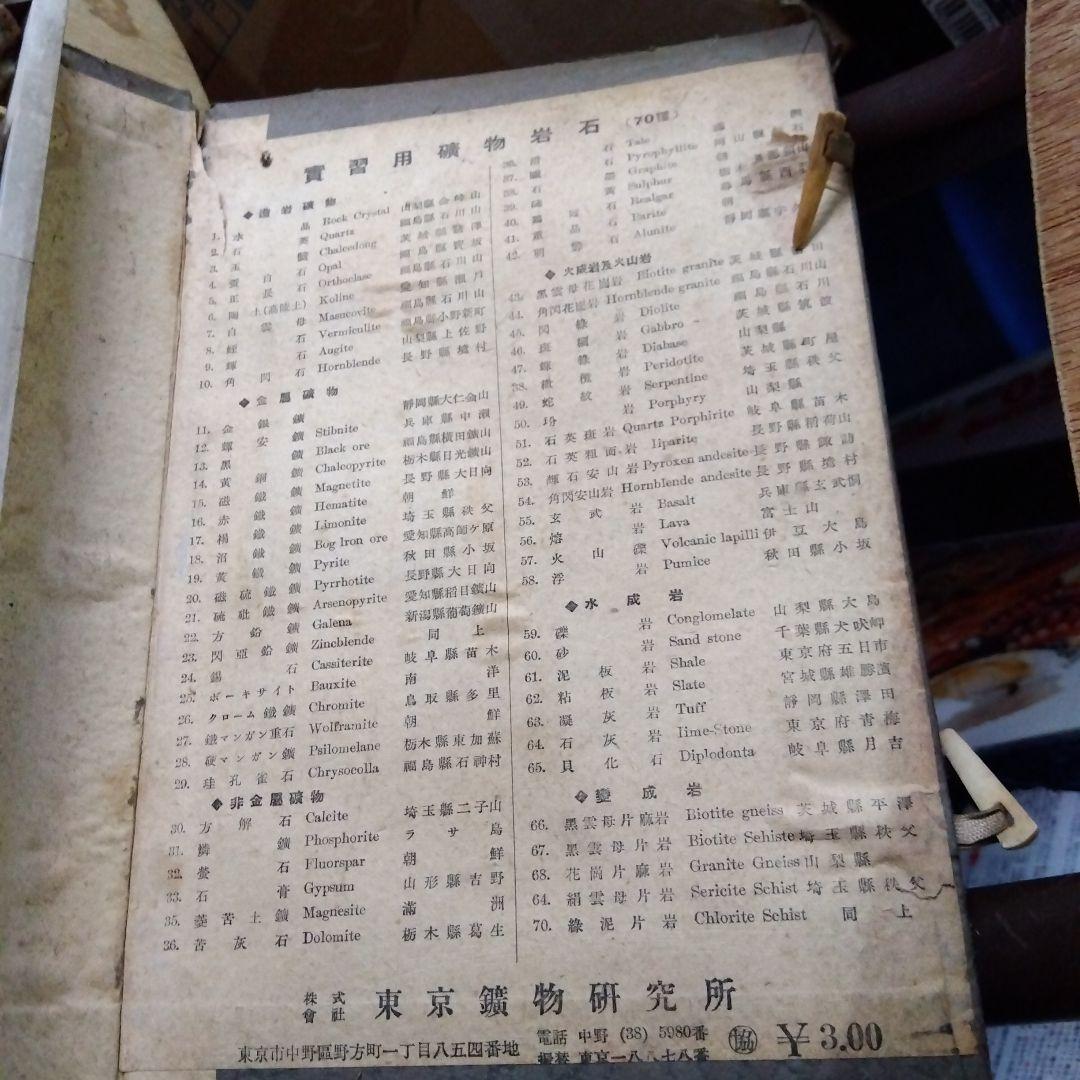 實習用礦物岩石 (70種)
◆造岩礦物
1. 水晶 Rock Crystal 山梨縣金峰山
2. 石英 Quartz 福島縣石川山
3. 玉髓 Chalcedong 茨城縣
4. 蛋白石 Opal 福島縣寶坂
5. 正長石 Orthoclase 福島縣石川山
6. 陶土(高陵土) Koline 愛知縣瀬戸
7. 白雲母 Masucovite 福島縣石川山
8. 蛭石 Vermiculite 福島縣小野新町
9. 輝石 Augite 山梨縣上佐野
10. 角閃石 Hornblende 長野縣境村
◆金屬礦物
11. 金銀鑛 靜岡縣大仁金山
12. 輝安鑛 Stibnite 兵庫縣中瀬
13. 黑鑛 Black ore 福島縣横田鑛山
14. 黄銅鑛 Chalcopyrite 栃木縣日光鑛山
15. 磁鐵鑛 Magnetite 長野縣大日向
16. 赤鐵鑛 Hematite 朝鮮
17. 楊鐵鑛 Limonite 埼玉縣秩父
18. 沼鐵鑛 Bog lron ore 愛知縣高師ケ原
19. 黄鐵鑛 Pyrite 秋田縣小坂
20. 磁硫鐵鑛 Pyrrhotite 長野縣大日向
21. 硫砒鐵鑛 Arsenopyrite 愛知縣稻目鑛山
22. 方鉛鑛 Galena 新潟縣葡萄鑛山
23. 閃亞鉛鑛 Zincblende 同上
24. 錫石 Cassiterite 岐阜縣苗木
25. ボーキサイト Bauxite 南洋
26. クローム鐵鑛 Chromite 鳥取縣多里
27. 鐵マンガン重石 Wolframite 朝鮮
28. 硬マンガン鑛 Psilomelane 栃木縣東加蘇
29. 珪孔雀石 Chrysocolla 福島縣石神村
◆非金屬礦物
30. 方解石 Calcite 埼玉縣二子山
31. 燐鑛 Phosphorite ラサ島
32. 螢石 Fluorspar 朝鮮
33. 石膏 Gypsum 山形縣吉野
35. 菱苦土鑛 Magnesite 滿洲
36. 苦灰石 Dolomite 栃木縣葛生
36. 滑石 Talc
37. 蠟石 Pyrophyllite 岡山縣
38. 石墨 Graphite 朝鮮
39. 硫黄 Sulphur
40. 鷄冠石 Realgar
41. 重晶石 Barite
42. 明礬石 Alunite 靜岡縣宇久
◆火成岩及火山岩
43. 黑雲母花崗岩 Biotite granite 茨城縣
44. 角閃花崗岩 Hornblende granite 福島縣石川山
45. 閃綠岩 Diolite 福島縣石川
46. 斑糲岩 Gabbro 茨城縣筑波
47. 輝綠岩 Diabase 山梨縣
38. 橄欖岩 Peridotite 茨城縣町屋
49. 蛇紋岩 Serpentine 埼玉縣秩父
50. 玢岩 Porphyry 山梨縣
51. 石英斑岩 Quartz Porphirite 岐阜縣苗木
52. 石英粗面岩 liparite 長野縣稻荷山
53. 輝石安山岩 Pyroxen andesite 長野縣諏訪
54. 角閃安山岩 Hornblende andesite 長野縣境村
55. 玄武岩 Basalt 兵庫縣玄武洞
56. 熔岩 Lava 富士山
57. 火山礫 Volcanic lapilli 伊豆大島
58. 浮岩 Pumice 秋田縣小坂
◆水成岩
59. 礫岩 Conglomelate 山梨縣大島
60. 砂岩 Sand stone 千葉縣犬吠岬
61. 泥板岩 Shale 東京府五日市
62. 粘板岩 Slate 宮城縣雄勝濱
63. 凝灰岩 Tuff 靜岡縣澤田
64. 石灰岩 lime-Stone 東京府青梅
65. 貝化石 Diplodonta 岐阜縣月吉
◆變成岩
66. 黑雲母片麻岩 Biotite gneiss 茨城縣平澤
67. 黑雲母片岩 Biotite Sehiste 埼玉縣秩父
68. 花崗片麻岩 Granite Gneiss 山梨縣
64. 絹雲母片岩 Sericite Schist 埼玉縣秩父
70. 綠泥片岩 Chlorite Schist 同上
株式會社 東京鑛物硏究所
東京市中野區野方町一丁目八五四番地
電話 中野 (38) 5980番
振替 東京一八八七八番
協 ¥3.00